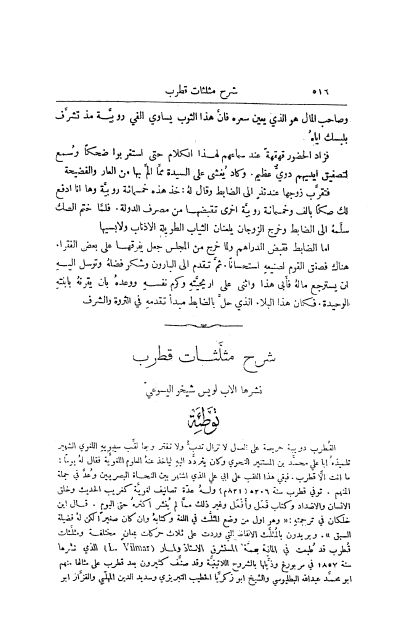 ٥١٦ شرح مثلثات قطرب
وصاحب المال هو الذي يعين سعره فانَّ هذا الثوب يساوي الفي روبيَّة مذ تشرَّف
بلبسك اياهُ
فزاد الحضور قهقهةً عند سماعهم لهذا الكلام حتى استغربوا ضحكًا وسُمع
لتصفيق ايديهم دويٌّ عظيم. وكاد يُغشى على السيدة ممَّا ألمَّ بها من العار والفضيحة
فتقرَّب زوجها عندئذٍ الى الضابط وقال لهُ: خذ هذه خمسمائة روبيَّة وها انا ادفع
لك صكًّا بالف وخمسمائة روبيَّة اخرى تقبضها من مصرف الدولة. فلمَّا ختم الصك
سلَّمهُ الى الضابط وخرج الزوجان يلعنان الثياب الطويلة الاذناب ولابسيها
اما الضابط فقبض الدراهم ولمَّا خرج من المجلس جعل يفرقها على بعض الفقراء.
هناك فصفَّق القوم لصنيعهِ استحسانًا. ثمَّ تقدم الى البارون وشكر فضلهُ وتوسل اليه
ان يسترجع مالهُ فأبى هذا واثنى على اريحيَّته وكرم نفسه ووعدهُ بان يقرنهُ بابنتهِ
الوحيدة. فكان هذا البلاء الذي حلَّ بالضابط مبدأ تقدمهِ في الثروة والشرف
شرح مثلَّثات قطرب
نشرها الاب لويس شيخو اليسوعي
توطئة
القُطرب دويبة حريصة على العمل لا تزال تدبّ ولا تفتر وبها لقَّب سيبويه اللغوي الشهير
تلميذهُ ابا علي محمَّد بن المستنير النحوي وكان يتردَّد اليهِ ليأخذ عنهُ العلوم اللغويَّة فقال لهُ يومًا:
ما انت الَّا قطرب. فبقي هذا اللقب على ابي علي الذي اشتهر بين النحاة البصريين وعُدَّ في جملة
ائمتهم. توفي قطرب سنة ٢٠٦هـ (٨٢١م) ولهُ عدَّة تصانيف لغويَّة كغريب الحديث وخلق
الانسان والاضداد وكتاب فَعَل وأَفعَل وغير ذلك ممَّا لم يُنشر أكثرهُ حتى اليوم. قال ابن
خلكان في ترجمتهِ: «وهو اول من وضع المثلَّث في اللغة وكتابهُ وان كان صغيرًا لكن لهُ فضيلة
السبق». ويريدون بالمثلَّث الالفاظ التي وردت على ثلاث حركات بمعانٍ مختلفة ومثلَّثات
قطرب قد طُبعت في المانية بهمَّة المستشرق الاستاذ ولمار (L. Vilmar) الذي نشرها
سنة ١٨٥٧ في مربورغ وذيَّلها بالشروح اللاتينيَّة وقد صنَّف كثيرون بعد قطرب على مثالها منهم ابو
محمَّد عبدالله البطليوسي والشيخ ابو زكريَّا الخطيب التبريزي وسديد الدين المهلَّبي والقزَّاز ابو